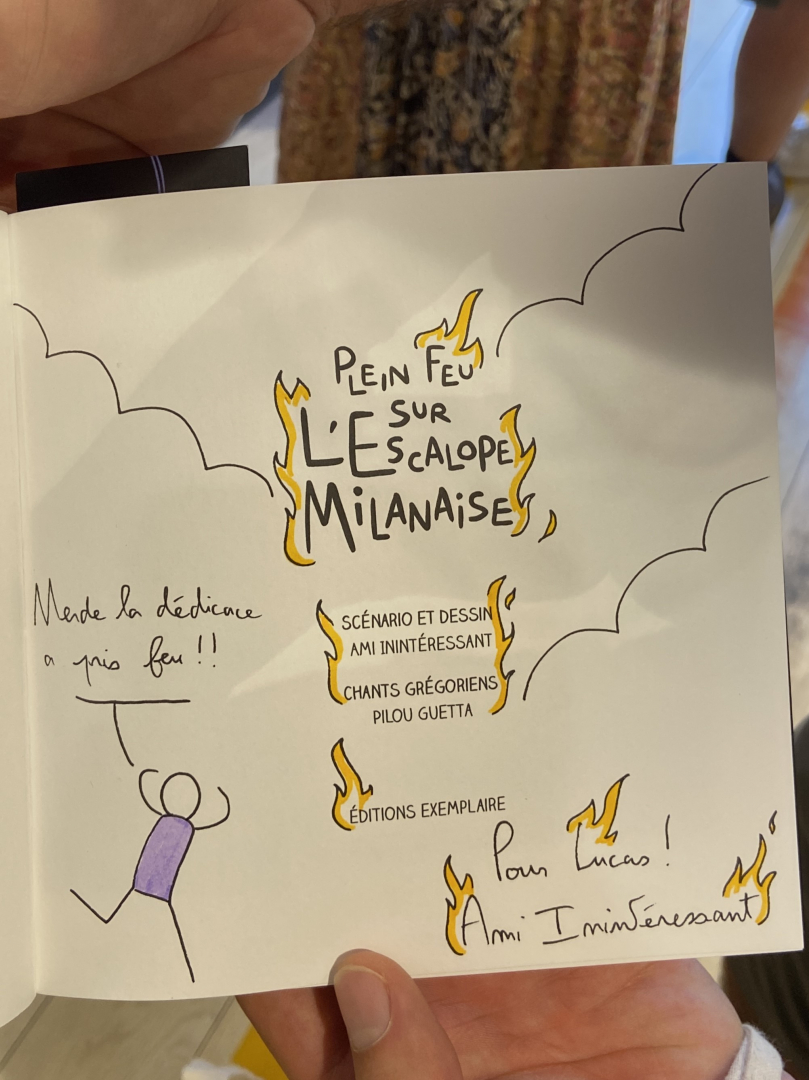 PLEIN FEU
SUR
L'ESCALOPE
MILANAISE
SCÉNARIO ET DESSIN
AMI ININTÉRESSANT
CHANTS GRÉGORIENS
PILOU GUETTA
ÉDITIONS EXEMPLAIRE
Merde la dédicace
a pris feu !!
Pour Lucas !
Ami Inintéressant